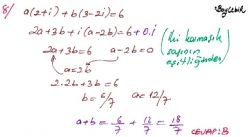 Baycebir
8/ a(2+i)+b(3-2i)=6
2a+3b+i(a-2b)=6+0.i
(iki karmaşık
sayının
eşitliğinden)
2a+3b=6 a-2b=0
a=2b
2.2b+3b=6
b=6/7 a=12/7
a+b=6/7+12/7=18/7
CEVAP:B